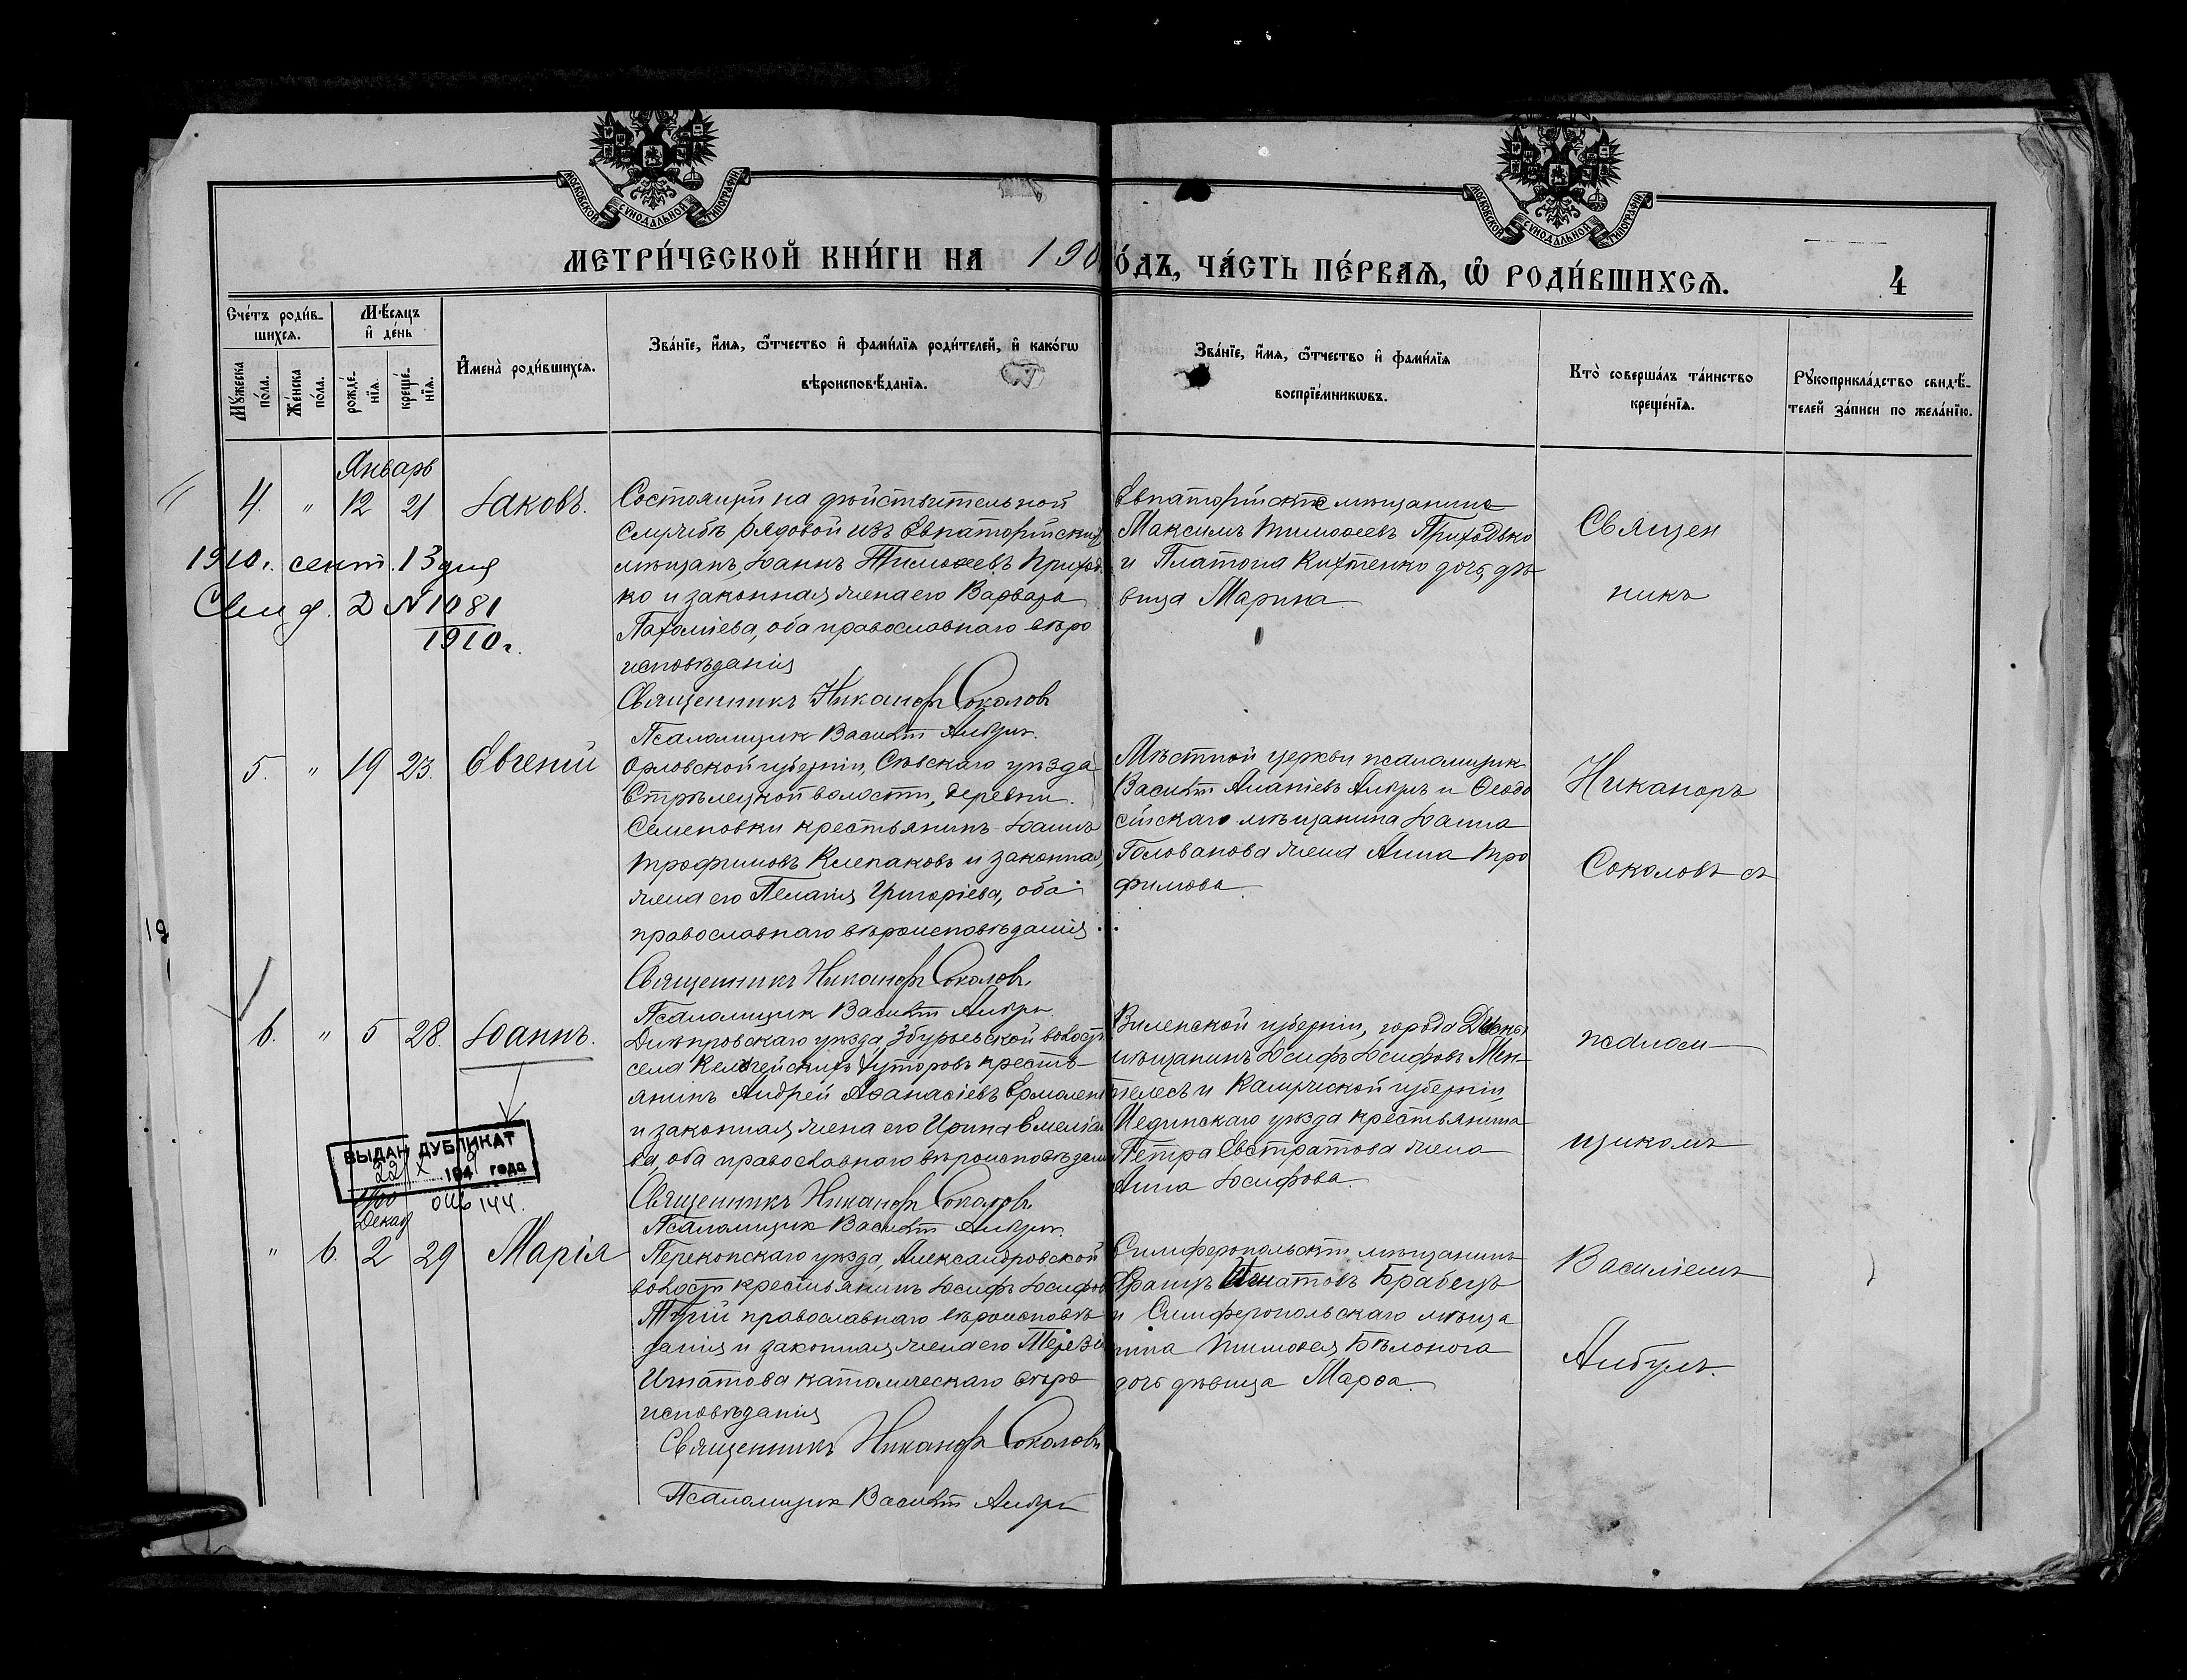 МОСКОВСКОЙ СѴНОДАЛЬНОЙ ТИПОГРАФІИ
МОСКОВСКОЙ СѴНОДАЛЬНОЙ ТИПОГРАФІИ
МЕТРИ́ЧЕСКОЙ КНИ́ГИ НА 190 О́ДЪ, ЧА́СТЬ ПЕ́РВАѦ, Ѽ РОДИ́ВШИХСѦ.
4
Сче́тъ роди́в-
шихсѧ.
Мꙋ́жеска по́ла.
Же́нска по́ла.
Мѣ́сѧцъ
и҆ де́нь
рожде́-
нїѧ.
креще́-
нїѧ.
И҆мена̀ роди́вшихсѧ.
Зва́нїе, и҆́мѧ, ѻ҆́тчество и҆ фами́лїѧ роди́телей, и҆ како́гѡ
вѣроисповѣ́данїѧ.
Зва́нїе, и҆́мѧ, ѻ҆́тчество и҆ фами́лїѧ
воспрїе́мникѡвъ.
Кто̀ соверша́лъ та́инство
креще́нїѧ.
Рꙋкоприкла́дство свидѣ́-
телей за́писи по жела́нїю.
Январь
4. " 12 21 Іаковъ.
Состоящій на дѣйствительной
службѣ рядовой изъ Евпаторійскихъ
мѣщанъ, Іоаннъ Тимоѳеевъ Приходь
ко и законная жена его Варвара
Пахоміева, оба православнаго вѣро
исповѣданія
Священникъ Никаноръ Соколовъ
Псаломщик Василій Анбул.
Евпаторійскіе мѣщанинъ
Максимъ Тимоѳеевъ Приходько
и Платона Кихтенко дочь, дѣ-
вица Марина.
Священ
никъ
1910г. сент. 13 дня
Свид. Д № 1081
1910г.
5. " 19 23. Евгеній
Орловской губерніи, Сѣвскаго уѣзда
Стрѣлецкой волости, деревни
Семеновки крестьянинъ Іоаннъ
Трофимовъ Клепаковъ и законная
жена его Пелагія Григоріева, оба
православнаго вѣроисповѣданія.
Священникъ Никаноръ Соколовъ.
Псаломщик Василій Анбул.
Мѣстной церкви псаломщик
Василій Ананіевъ Анбулъ и Ѳеодо
сійскаго мѣщанина Іоанна
Голованова жена Анна Тро
фимова
Никаноръ
Соколовъ съ
19
6. " 5 28. Іоаннъ.
Днѣпровскаго уѣзда, Збурьевской волости
села Келегейскихъ Хуторовъ кресть-
янинъ Андрей Аѳанасіевъ Ермолен
и законная жена его Ирина Емеліа
ва, оба православнаго вѣроисповѣдан
Священникъ Никаноръ Соколовъ.
Псаломщик Василій Анбул.
Виленской губерніи, города Дисны
мѣщанинъ Іосифъ Іосифовъ Мен-
телесъ и Калужской губерніи,
Мединскаго уѣзда крестьянина
Петра Евстратова жена
Анна Іосифова.
псалом-
щикомъ
ВЫДАН ДУБЛИКАТ
22/X 194 года
144.
Декаб
" 6. 2 29 Марія
Перекопскаго уѣзда, Александровской
волости крестьянинъ Іосифъ Іосифов
православнаго вѣроисповѣ-
данія и законная жена его Терезія
Игнатова католическаго вѣро
исповѣданія
Священникъ Никаноръ Соколовъ
Псаломщик Василій Анбул
Симферопольскій мѣщанинъ
Францъ Игнатовъ Брабецъ
и Симферопольскаго мѣща
нина Тимоѳея Бѣлонога
дочь дѣвица Марѳа.
Василіемъ
Анбулъ.